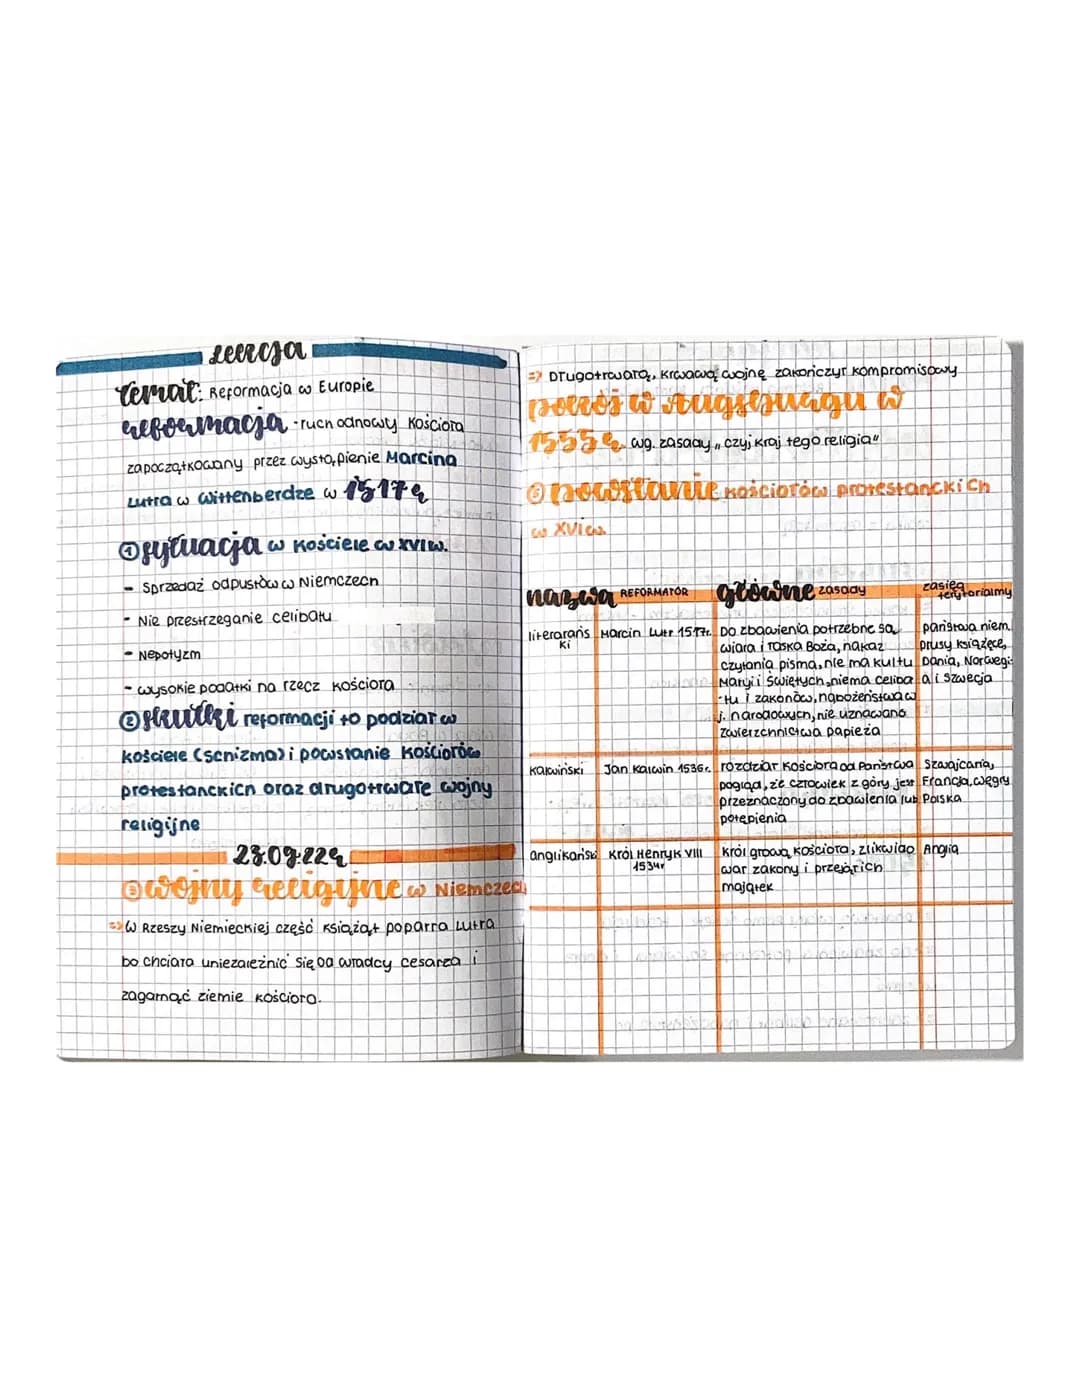 Lekcja
temat: Reformacja w Europie
reformacja - ruch odnowy Kościoła
zapoczątkowany przez wystąpienie Marcina
Lutra w Wittenberdze w 1517r
① sytuacja w Kościele w XVI w.
- Sprzedaż odpustów w Niemczech
- Nie przestrzeganie celibatu
- Nepotyzm
- wysokie podatki na rzecz kościoła
② skutki reformacji to podział w
kościele (schizma) i powstanie kościołów
protestanckich oraz długotrwałe wojny
religijne
23.09.22r
③ wojny religijne w Niemczech
=> W Rzeszy Niemieckiej część książąt poparła Lutra
bo chciała uniezależnić się od władcy cesarza i
zagarnąć ziemie kościoła.
=> Długotrwałą, krwawą wojnę zakończył kompromisowy
pokój w Augsburgu w
1555r wg. zasady „czyj kraj tego religia"
powstanie kościołów protestanckich
w XVI w.
nazwa REFORMATOR główne zasady zasięg terytorialny
literarańs ki
Marcin Lutr 1517r.
Do zbawienia potrzebne są
wiara i łaska Boża, nakaz
czytania pisma, nie ma kultu
Maryi i Świętych, niema celiba
-tu i zakonów, nabożeństwa w
j. narodowych, nie uznawano
zwierzchnictwa papieża
państwa niem.
prusy książęce,
Dania, Norwegi
a i Szwecja
Kalwiński
Jan Kalwin 1536r.
rozdział Kościoła od Państwa
pogląd, że człowiek z góry jest
przeznaczony do zbawienia lub
potępienia
Szwajcaria,
Francja, węgry
Polska
anglikański
Król Henryk VIII
1534r
Król głową kościoła, zlikwido
wał zakony i przejął ich
majątek
Anglia